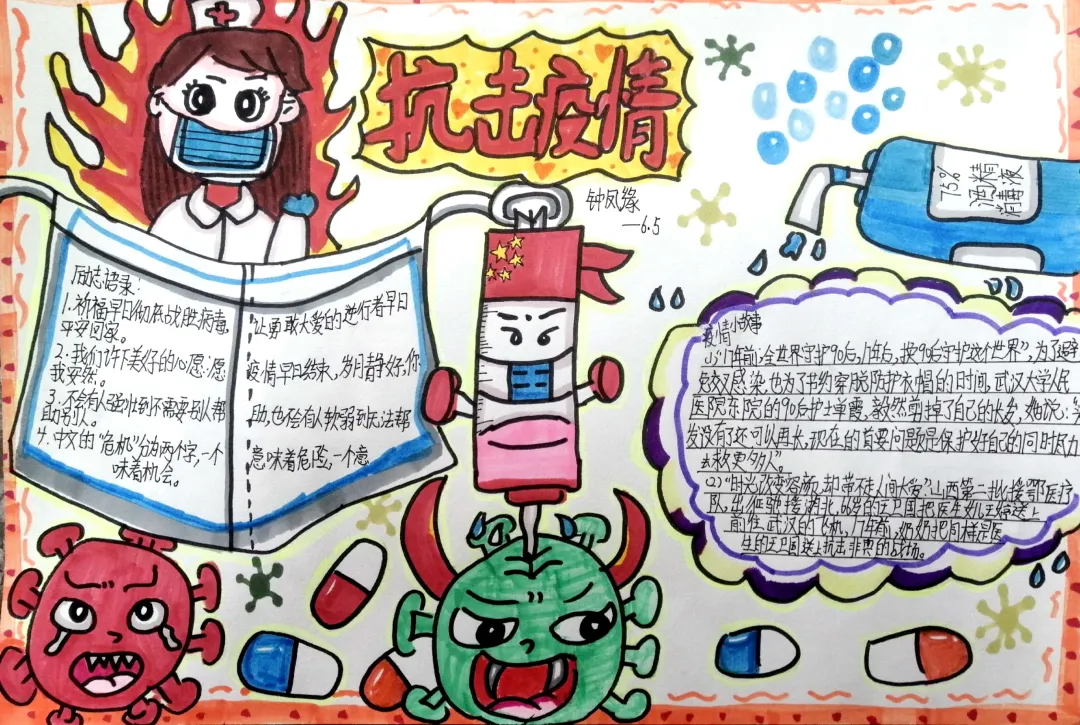 抗击疫情
钟凤缘
—6.5
75%
酒精
消毒液
励志语录:
1.祈福早日彻底战胜病毒,
平安回家。
2.我们许下美好的心愿:愿
我安然。
3.不会有人强壮到不需要别人帮
助别人。
4.中文的“危机”分为两个字,一个
味着机会。
让勇敢大爱的逆行者早日
疫情早日结束,岁月静好,你
助,也不会有人软弱到无法帮
意味着危险,一个意
疫情小故事
(1)“17年前,全世界守护90后,17年后,换90后守护这个世界”,为了避
免交叉感染,也为了节约穿脱防护衣帽的时间,武汉大学人民
医院东院的90后护士单霞,毅然剪掉了自己的长发,她说:
发没有了还可以再长,现在的首要问题是保护好自己的同时尽力
去救更多人”。
(2)“时光改变容颜,却带不走人间大爱”,山西第一批援鄂医疗
队,出征驰援湖北,66岁的王卫国把医生女儿王 送上
前往武汉的飞机,17年前,奶奶把同样是医
生的王卫国送上抗击非典的战场。